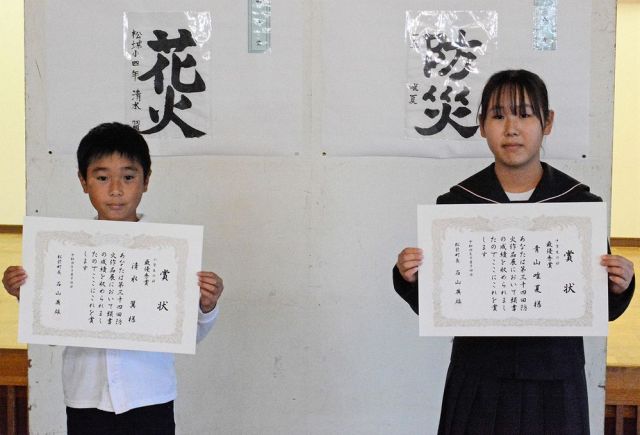 花火
松伏小四年 清水 翼
防災
唯夏
賞状
最優秀賞
清水 翼様
あなたは第三十四回防
火作品展において頭書
の成績を収められまし
たのでここにこれを賞
します
松伏町長 石山英雄
賞状
最優秀賞
青山唯夏様
あなたは第三十四回防
火作品展において頭書
の成績を収められまし
たのでここにこれを賞
します
松伏町長 石山英雄